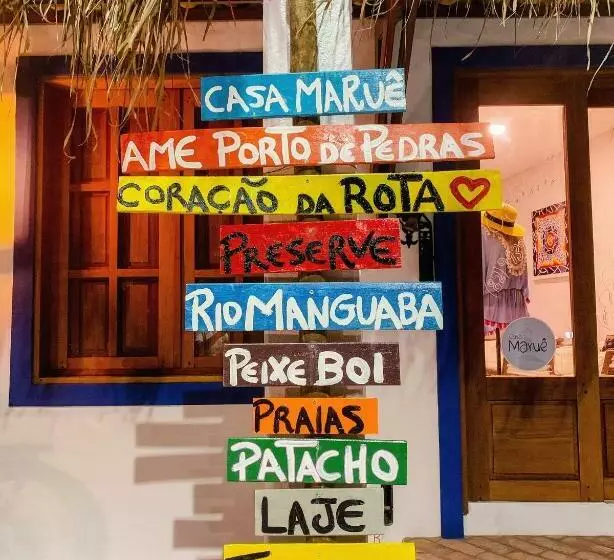 CASA MARUÊ
AME PORTO DE PEDRAS
CORAÇÃO DA ROTA
PRESERVE
RIO MANGUABA
PEIXE BOI
PRAIAS
PATACHO
LAJE
Maruê